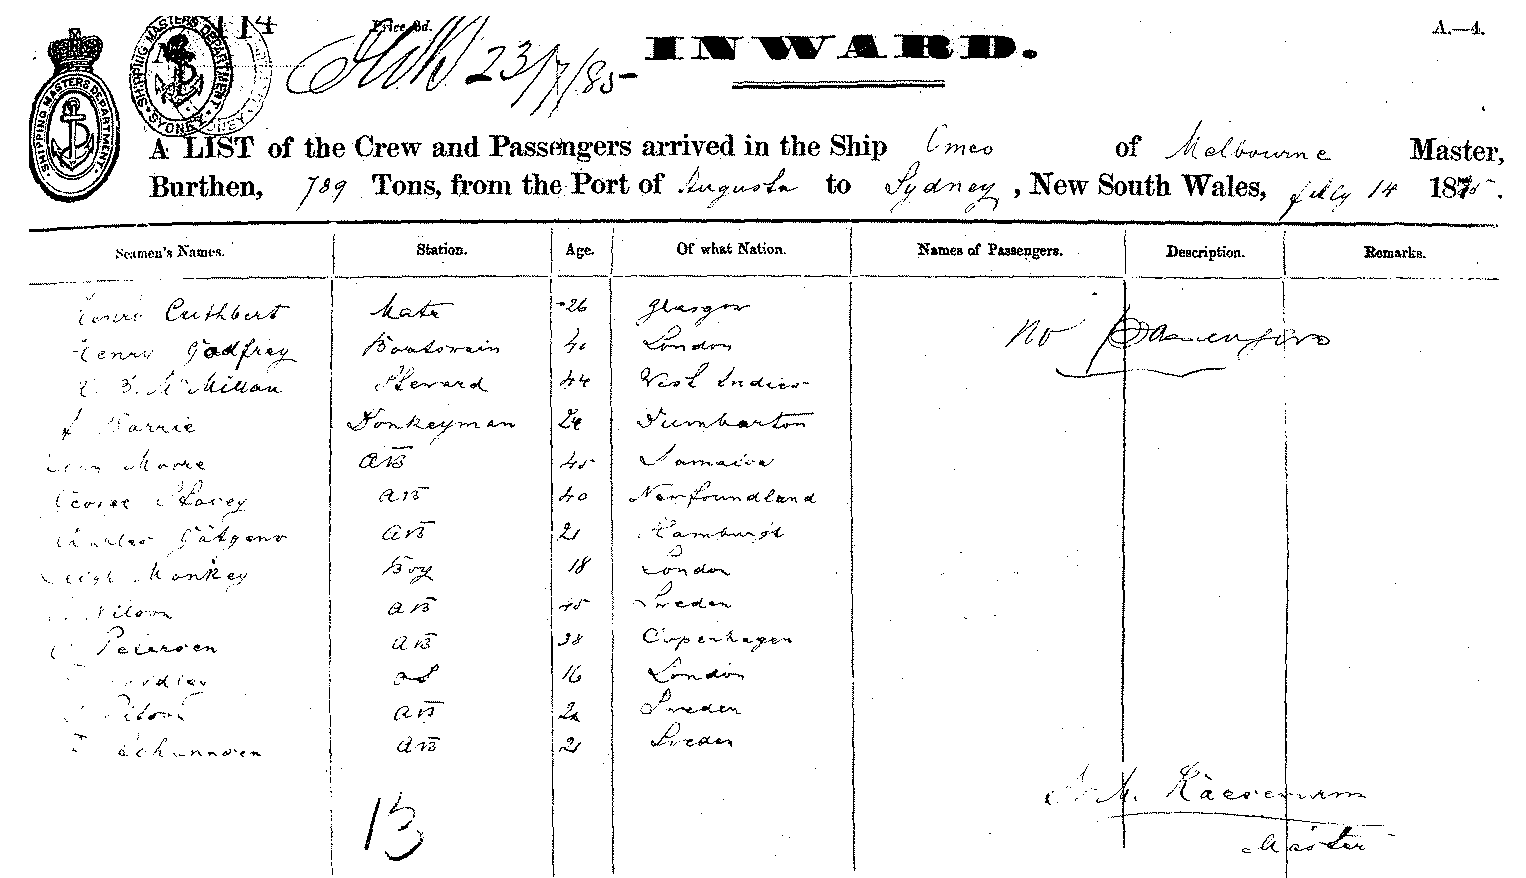 Price 6d.
INWARD.
A.—4.
23/7/85
SHIPPING MASTERS DEPARTMENT
SHIPPING MASTERS DEPARTMENT SYDNEY
A LIST of the Crew and Passengers arrived in the Ship Omeo of Melbourne Master,
Burthen, 789 Tons, from the Port of Augusta to Sydney, New South Wales, July 14 1885.
Seamen's Names. Station. Age. Of what Nation. Names of Passengers. Description. Remarks.
Cuthbert Mate 26 Glasgow
Henry Godfrey Boatswain 40 London
McMillan Steward 44 West Indies
Barrie Donkeyman 24 Dumbarton
Moore AB 45 Jamaica
George Stacey AB 40 Newfoundland
Charles AB 21 Hamburgh
Monkey Boy 18 London
Nilson AB 45 Sweden
Petersen AB 28 Copenhagen
OS 16 London
AB Sweden
AB 21 Sweden
No Passengers
13
Master